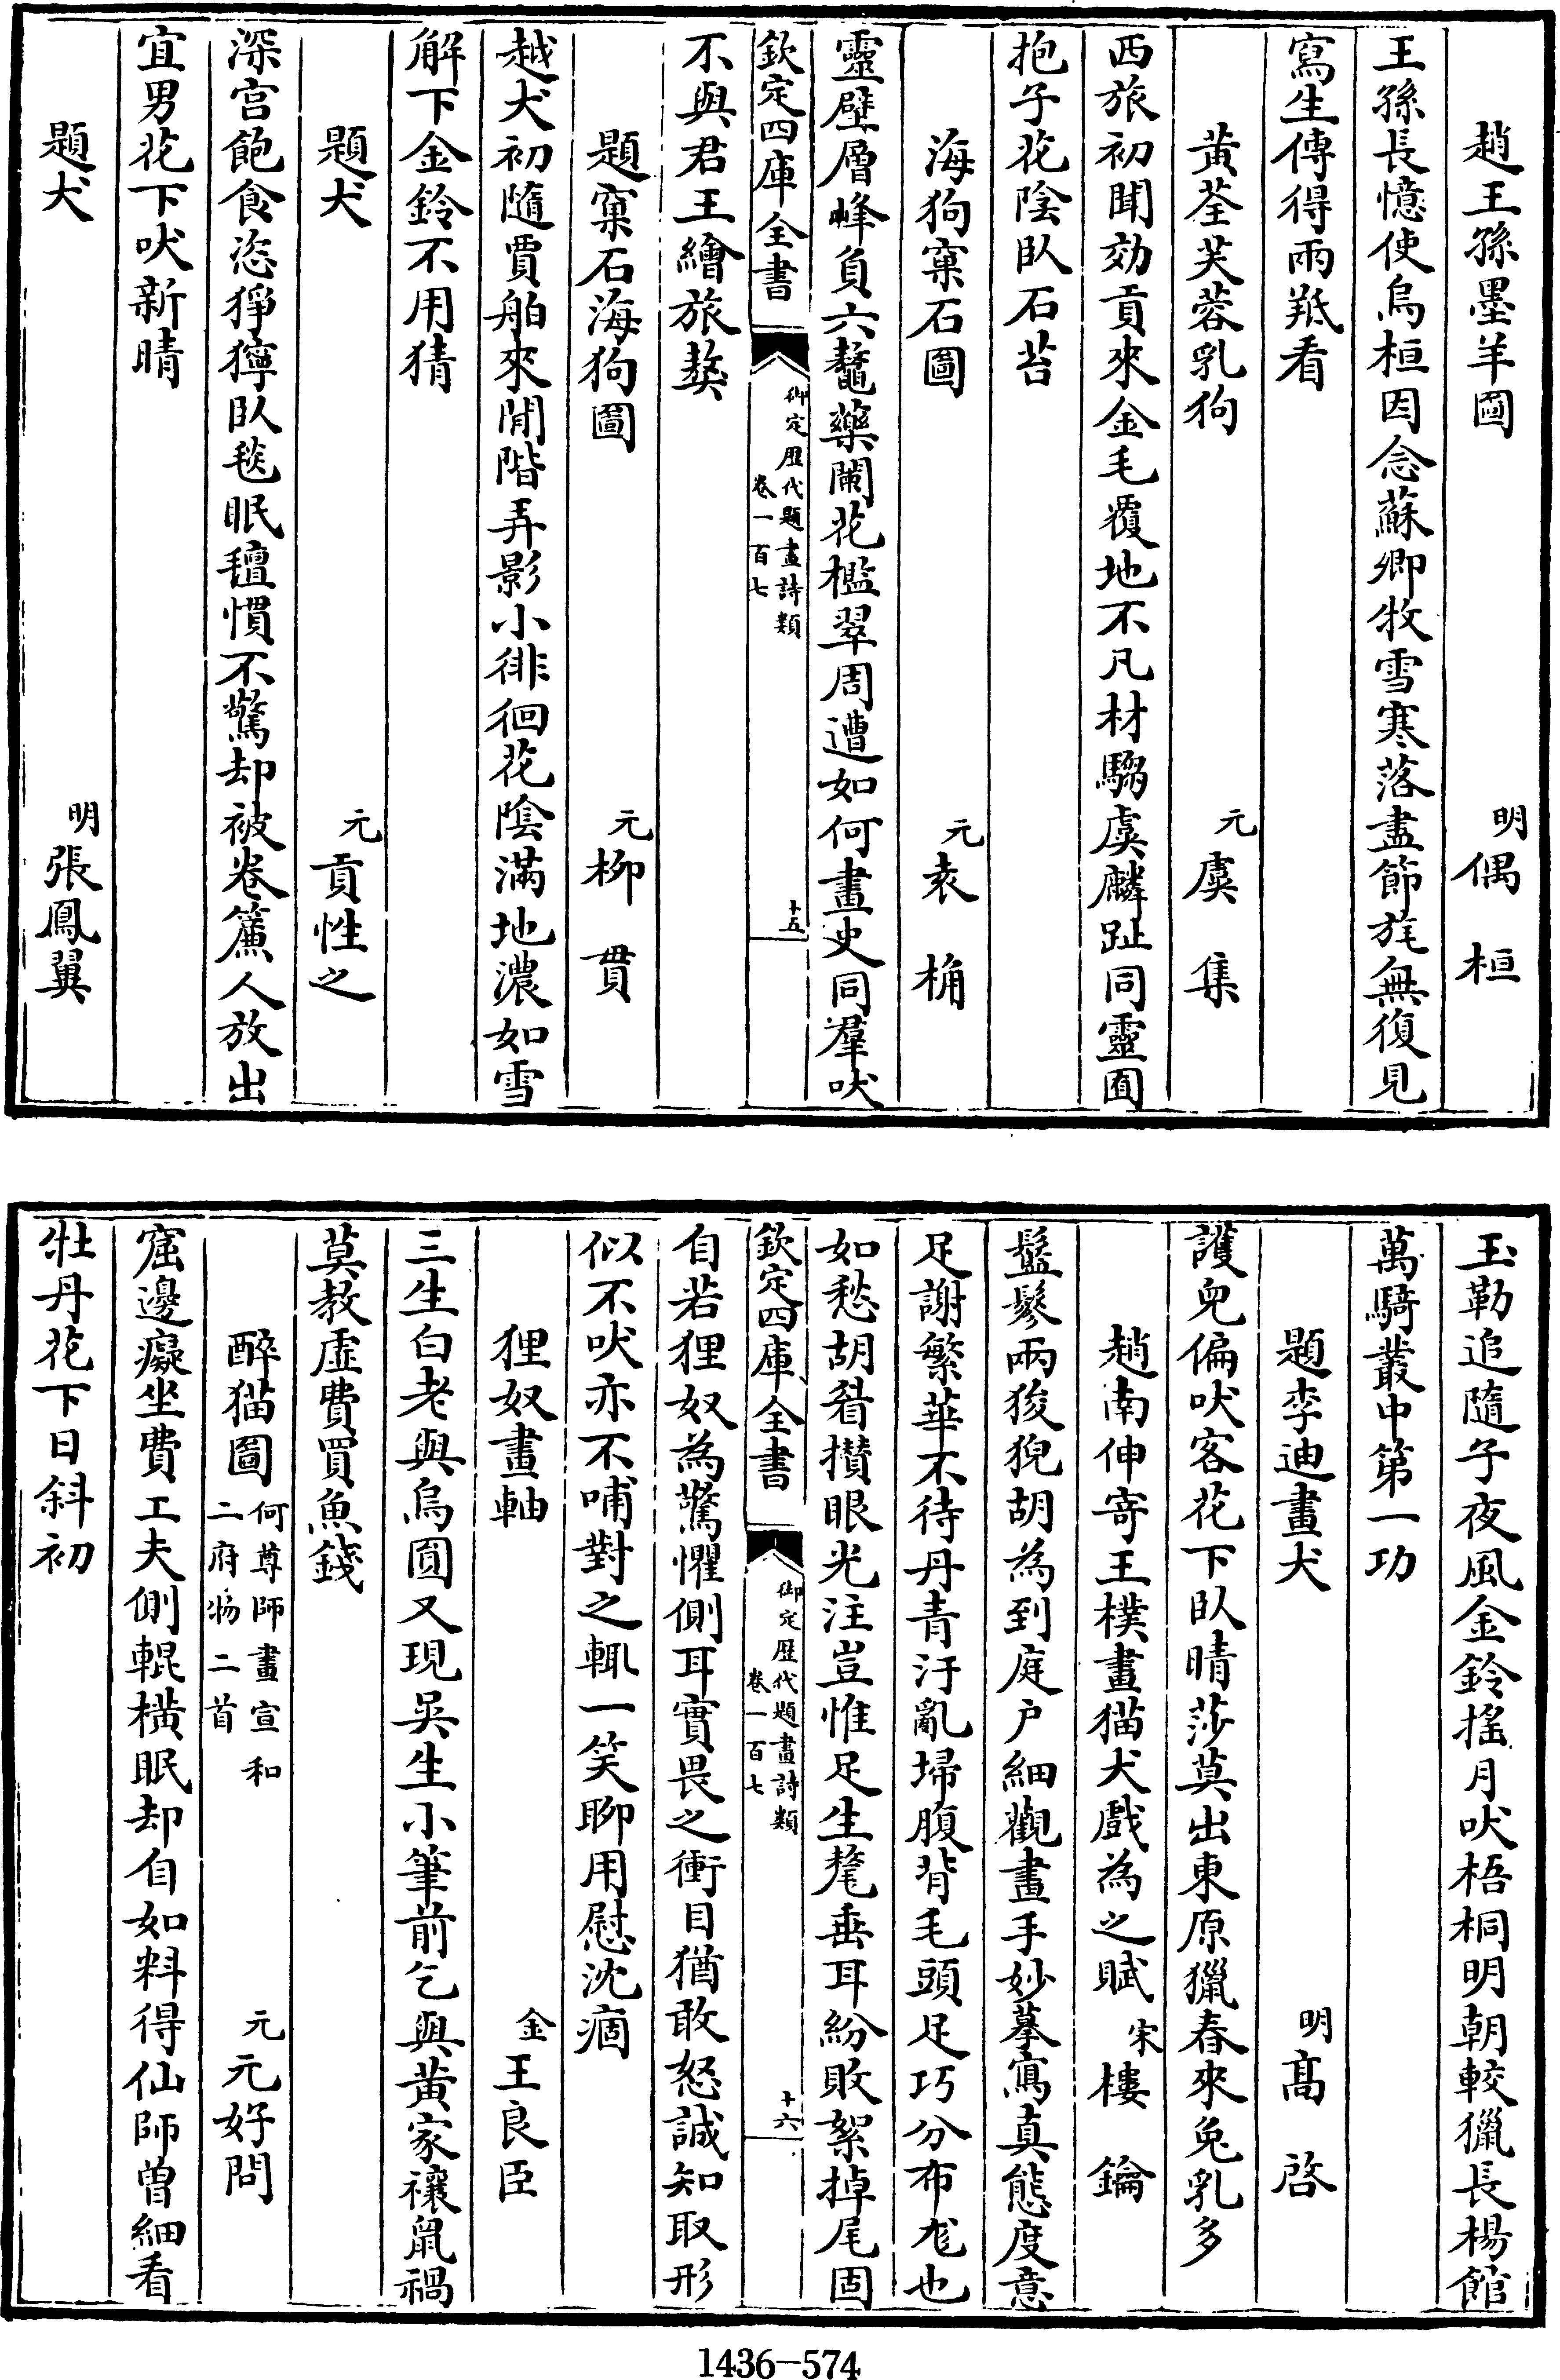 趙王孫墨羊圖　明偶桓
王孫長憶使烏桓因念蘇卿牧雪寒落盡節旄無復見
寫生傳得兩羝看
黃荃芙蓉乳狗　元虞集
西旅初聞効貢來金毛覆地不凡材騶虞麟趾同靈囿
抱子花陰臥石苔
海狗窠石圖　元袁桷
靈壁層峰負六鼇藥闌花檻翠周遭如何畫史同羣吠
欽定四庫全書　御定歷代題畫詩類　卷一百七　十五
不與君王繪旅獒
題窠石海狗圖　元柳貫
越犬初隨賈舶來閒階弄影小徘徊花陰滿地濃如雪
解下金鈴不用猜
題犬　元貢性之
深宮飽食恣猙獰臥毯眠氊慣不驚却被卷簾人放出
宜男花下吠新晴
題犬　明張鳳翼
玉勒追隨子夜風金鈴搖月吠梧桐明朝較獵長楊館
萬騎叢中第一功
題李迪畫犬　明高啓
護兒偏吠客花下臥晴莎莫出東原獵春來兔乳多
趙南伸寄王樸畫猫犬戲為之賦　宋樓鑰
鬈鬖兩狻猊胡為到庭户細觀畫手妙摹寫真態度意
足謝繁華不待丹青汙亂埽腹背毛頭足巧分布尨也
如愁胡㸔攢眼光注豈惟足生氂垂耳紛敗絮掉尾固
欽定四庫全書　御定歷代題畫詩類　卷一百七　十六
自若狸奴為驚懼側耳實畏之衝目猶敢怒誠知取形
似不吠亦不哺對之輒一笑聊用慰沈痼
狸奴畫軸　金王良臣
三生白老與烏圓又現吳生小筆前乞與黃家禳鼠禍
莫教虛費買魚錢
醉猫圖　何尊師畫宣和二府物二首　元元好問
窟邊癡坐費工夫側輥橫眠却自如料得仙師曾細看
牡丹花下日斜初
1436-574